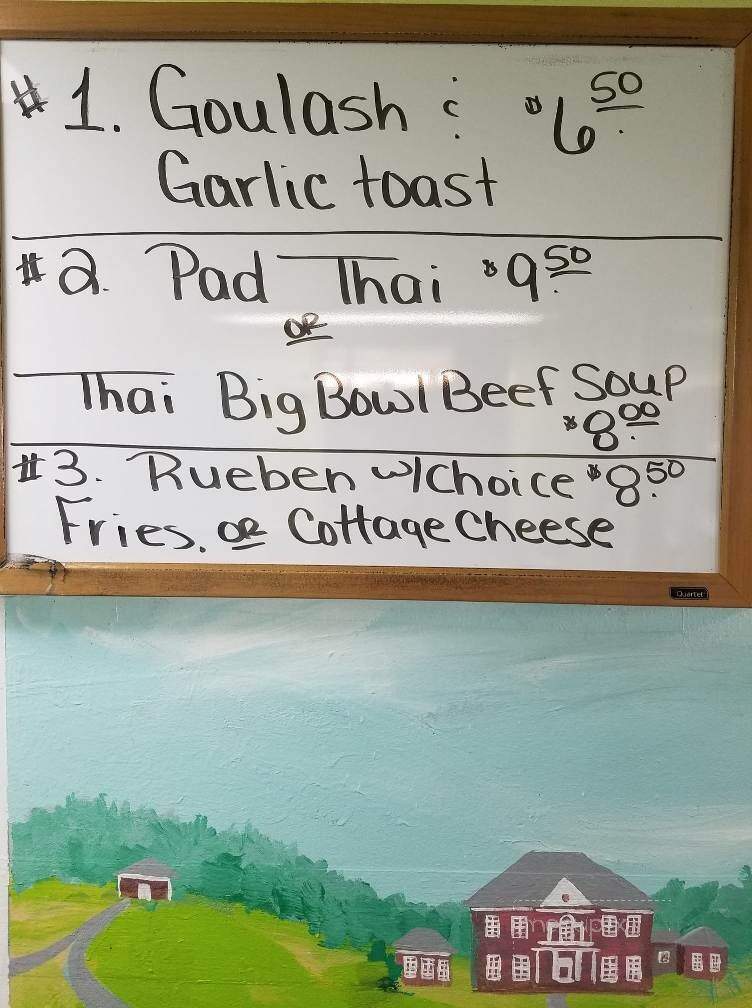 #1. Goulash & $6.50
Garlic toast
#2. Pad Thai $9.50
OR
Thai Big Bowl Beef Soup
$8.00
#3. Rueben w/Choice $8.50
Fries. OR Cottage Cheese
Quartet